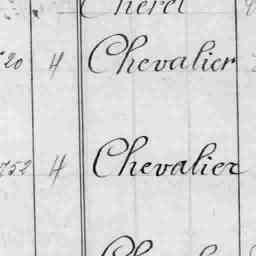 Cheret
20 4 Chevalier
752 4 Chevalier